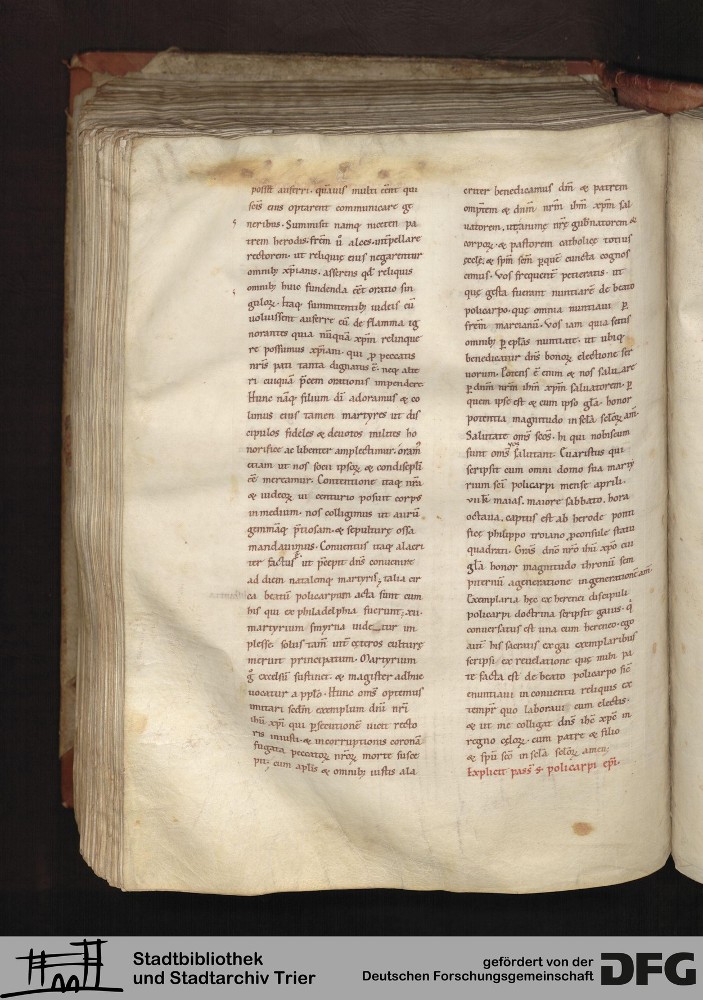 possit auferri. quāuis multi eēnt qui
scīs eius optarent communicare ge
neribus. Summisit namq; niceten pa
trem herodis. frēm ū alces. int̄pellare
rectorem. ut reliquię eius negarentur
omnib; xp̄ianis. asserens qd̄ reliquis
omnib; huic fundenda eēt oratio sin
gulorꝝ. Itaq; summitentib; iudeis cū
uoluissent auferre eū de flamma ig
norantes quia nūquā xpm̄ relinque
re possumus xp̄iani. qui ꝓ peccatis
nr̄is pati tanta dignatus ē. neq; alte
ri cuiquā p̄cem orationis impendere
Hunc nāq; filium dī adoramus & co
limus eius tamen martyres ut dis
cipulos fideles & deuotos milites ho
norifice ac libenter amplectimur. oram̄
etiam ut nos socii ipsorꝝ & condiscipli
cē mereamur. Contentione itaq; nr̄a
& iudeorꝝ ui centurio posuit corpꝰ
in medium. nos colligimus ut aurū
gemmāq; p̄tiosam. & sepulturę ossa
mandauimus. Conuentus itaq; alacri
ter factus ut p̄cepit dn̄s conuenire
ad diem natalemq; martyris; talia cir
ca beatū policarpum acta sunt cum
his qui ex philadelphia fuerunt; xii.
martyrium smyrna uidetur im
plesse solus tam̄ int̄ cęteros culturę
meruit principatum. Martyrium
g̊ excelsū sustinet. & magister adhuc
uocatur a pplō. Hunc om̄s optemus
imitari sedm̄ exemplum dn̄i nr̄i
ihū xp̄i qui p̄secutionē uicit recto
ris iniusti. & incorruptionis coronā
fugata peccatorꝝ nr̄orꝝ morte susce
pit; cum aplīs & omnib; iustis ala
criter benedicamus dm̄ & patrem
omp̄tem & dnm̄ nr̄m ihm̄ xpm̄ sal
uatorem. utq; animę nr̄ę gub̄natorem &
corporꝝ. & pastorem catholicę totius
ęcclę. & spm̄ scm̄ p̄ quē cuncta cognos
cimus. Vos frequent̄ petieratis. ut
quę gesta fuerant nuntiarē de beato
policarpo. quę omnia nuntiaui p̄
frēm marcianū. Vos iam quia scitis
omnib; p̄ eplās nuntiate. ut ubiq;
benedicatur dn̄s bonorꝝ electione ser
uorum. Potens ē enim & nos saluare
p̄ dnm̄ nr̄m ihm̄ xpm̄ saluatorem. p̄
quem ipse est & cum ipso glā. honor
potentia magnitudo in sclā sclorꝝ am̄.
Salutate om̄s scōs. hi qui nobiscum
sunt om̄s uos salutant. Euaristus qui
scripsit cum omni domo sua marty
rium scī policarpi mense aprili.
vii k̄. maias. maiore sabbato. hora
octaua. captus est ab herode ponti
fice philippo troiano. ꝓconsule statu
quadrati. Grās dn̄o nr̄o ihū xp̄o cui
glā honor magnitudo thronū sem
piternū. a generatione in generationē am̄.
Exemplaria hęc ex herenei discipuli
policarpi doctrina scripsit gaius. q̄
conuersatus est una cum hereneo. ego
autē his sacratis ex gai exemplaribus
scripsi ex reuelatione quę mihi pa
te facta est de beato policarpo sic̄
enuntiaui in conuentu reliquis ex
tempr̄ quo laboraui cum electis.
& ut me colligat dn̄s ihc̄ xpc̄ in
regno cęlorꝝ. cum patre & filio
& spū scō in sclā sclorꝝ amen;
Explicit pass̄ s. policarpi epī.
Stadtbibliothek
und Stadtarchiv Trier
gefördert von der
Deutschen Forschungsgemeinschaft
DFG